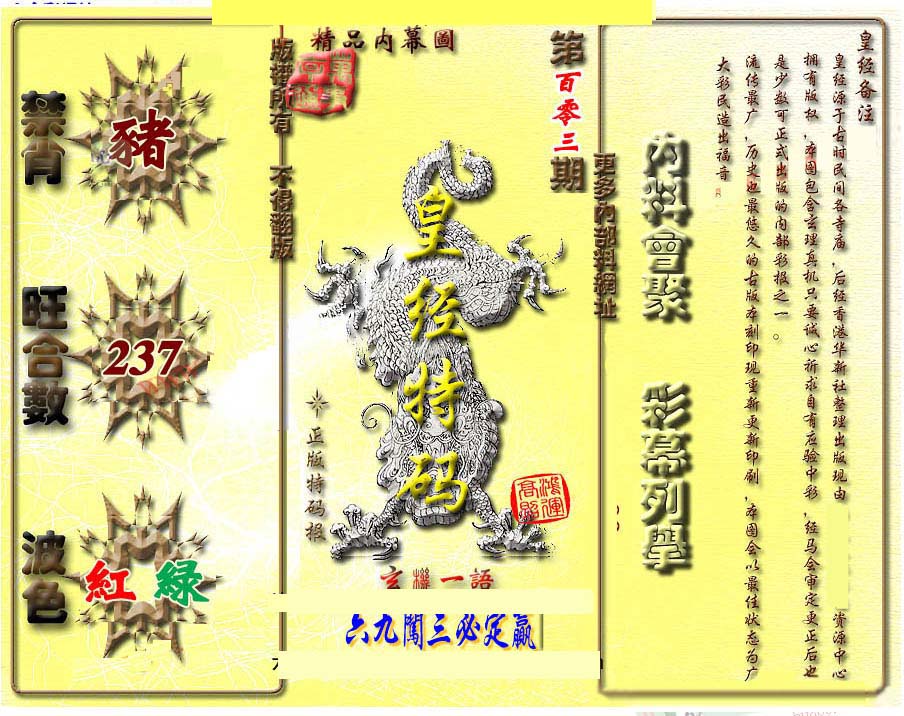 精品内幕圖
第
百零三
期
版權所有 不得翻版
更多内部料網址
禁肖
豬
旺合數
237
波色
紅 緑
皇经特码
正版特码报
鴻運高照
玄機一語
六九闖三必定贏
内料會聚
彩幕列舉
皇经备注
皇经源于古时民间各寺庙,后经香港华新社整理出版现由 资源中心
拥有版权,本图包含玄理真机只要诚心祈求自有应验中彩,经马会审定更正后也
是少数可正式出版的内部彩报之一。
流传最广,历史也最悠久的古版本刻印现重新更新印刷,本图会以最佳状态为广
大彩民造出福音